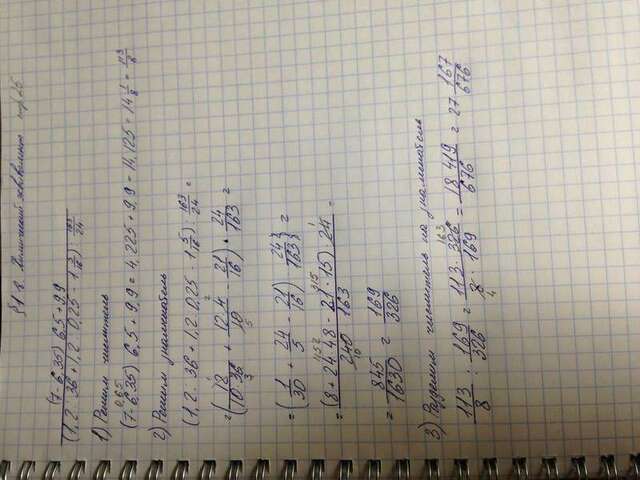 §1.8. Химический эквивалент стр 25
(7-6,35) 6,5+9,9
(1,2 : 36 + 1,2 : 0,25 - 1 5/16) : 163/24
1) Решим числитель
0,65
(7-6,35) 6,5 + 9,9 = 4,225 + 9,9 = 14,125 = 14 1/8 = 113/8
2) Решим знаменатель
(1,2 : 36 + 1,2 : 0,25 - 1 5/16) : 163/24 =
=(12/10·36 + 12·4/10 - 21/16) · 24/163 =
=(1/30 + 24/5 - 21/16) 24/163 =
=(8 + 24·48 - 21·15)·24/240 163 =
= 845/1630 = 169/326
3) Разделим числитель на знаменатель
113/8 : 169/326 = 113·326/8·169 = 18419/676 = 27 167/676